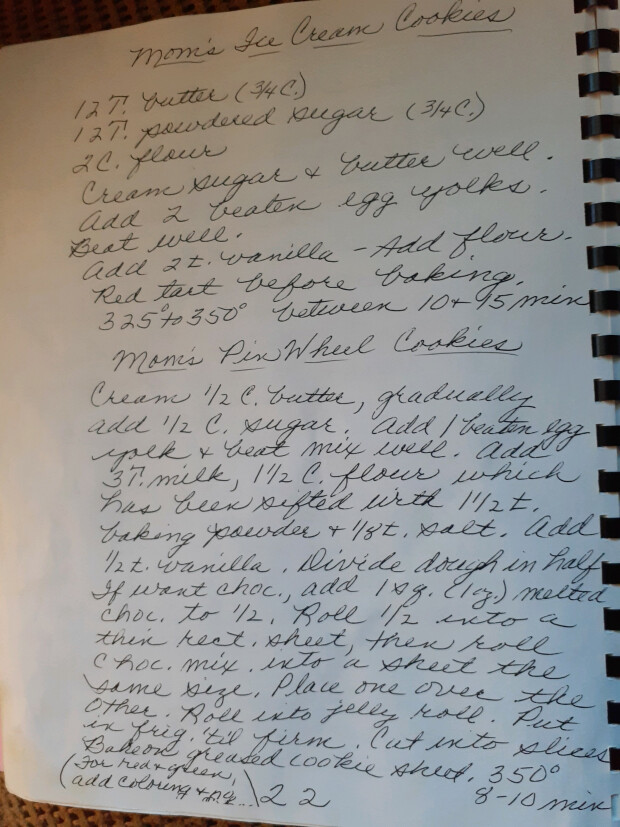 Mom's Ice Cream Cookies
12 T. butter (3/4 C.)
12 T. powdered sugar (3/4 C.)
2 C. flour
Cream sugar + butter well.
Add 2 beaten egg yolks.
Beat well.
Add 2 t. vanilla - Add flour.
Red tart before baking.
325° to 350° between 10 + 15 min
Mom's Pin Wheel Cookies
Cream 1/2 C. butter, gradually
add 1/2 C. sugar. Add 1 beaten egg
yolk & beat mix well. Add
3 T. milk, 1 1/2 C. flour which
has been sifted with 1 1/2 t.
baking powder + 1/8 t. salt. Add
1/2 t. vanilla. Divide dough in half
If want choc., add 1 sq. (1 oz.) melted
choc. to 1/2. Roll 1/2 into a
thin rect. sheet, then roll
choc. mix. into a sheet the
same size. Place one over the
other. Roll into jelly roll. Put
in frig. 'til firm. Cut into slices
Bake on greased cookie sheet. 350°
(For red & green, 8-10 min
add coloring &
22